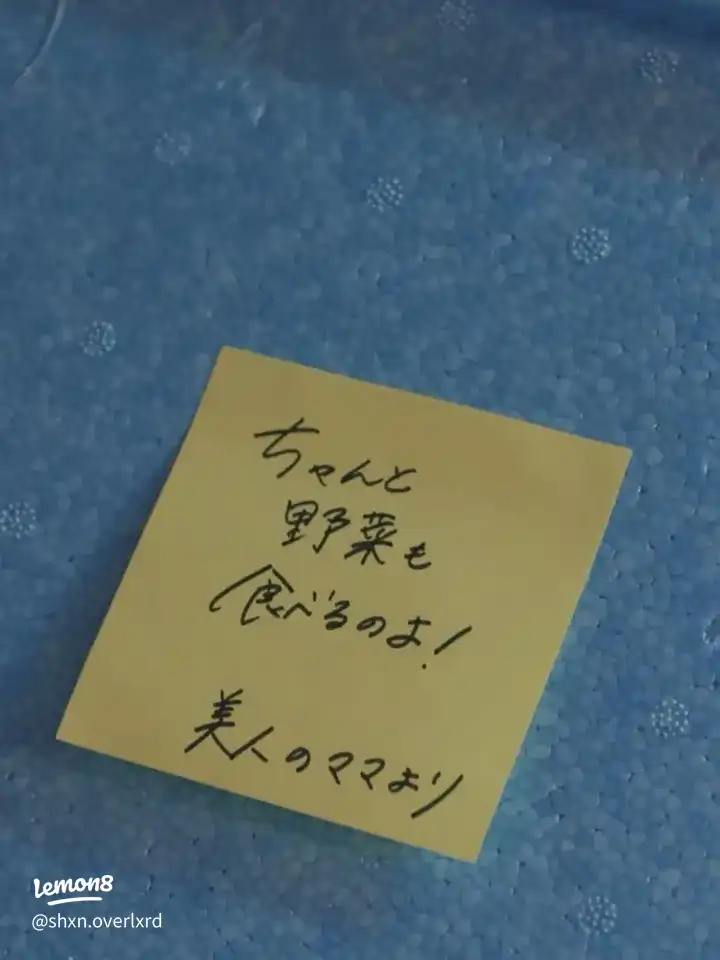 ちゃんと
野菜も
食べるのよ!
美人のママより
lemon8
@shxn.overlxrd